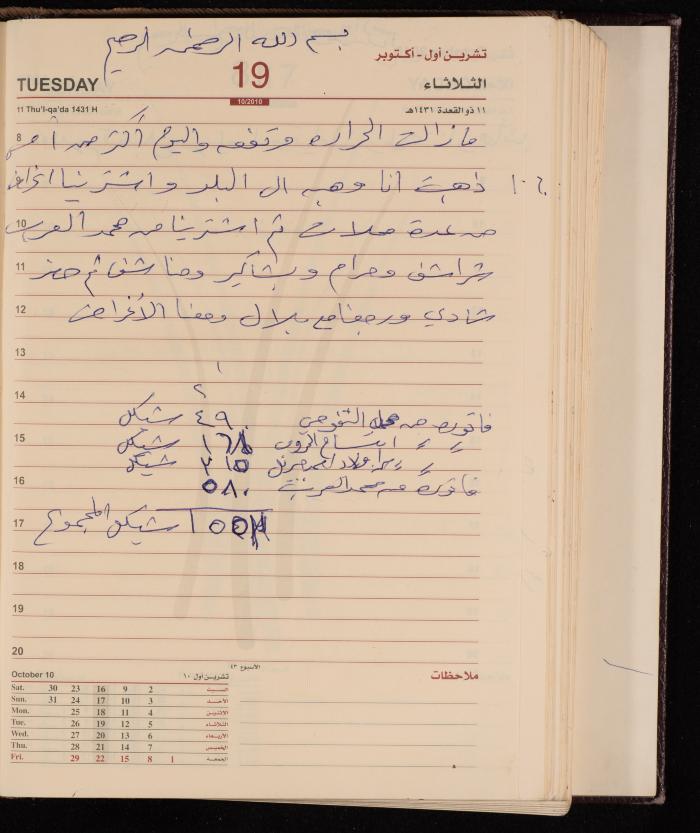 بسم الله الرحمن الرحيم
تشرين أول - أكتوبر
TUESDAY
19
الثلاثاء
10/2010
11 Thu'l-qa'da 1431 H
١١ ذو القعدة ١٤٣١هـ
8 مازالت الحراره مرتفعه واليوم أكثر من
ذهبت انا وهبه الى البلد واشترينا اغراض
10 من عدة محلات ثم اشترينا من محمد العرب
11 شراشف وحرام وبشاكير ومناشف ثم
12 شادي ورجعنا مع بلال ومعنا الأغراض
13
14
فاتوره من محل ٤٩٠ شيكل
15 ١٦٨ شيكل
٣١٥ شيكل
16 فاتورة من محمد العرب ٥٨٠
17 شيكل المجموع
18
19
20
October 10
تشرين أول ١٠
الأسبوع ٤٣
ملاحظات
Sat. 30 23 16 9 2 السبت
Sun. 31 24 17 10 3 الأحد
Mon. 25 18 11 4 الاثنين
Tue. 26 19 12 5 الثلاثاء
Wed. 27 20 13 6 الأربعاء
Thu. 28 21 14 7 الخميس
Fri. 29 22 15 8 1 الجمعة